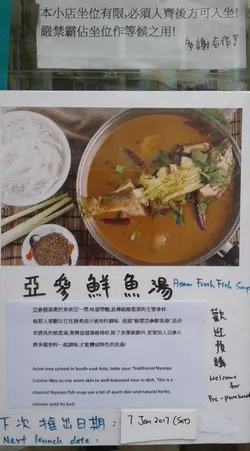 本小店坐位有限,必須人齊後方可入坐!
嚴禁霸佔坐位作等候之用!
多謝合作!!
亞參鮮魚湯
Asam Fresh Fish Soup
Asam tree coined in South-east Asia, taste sour. Traditional Nyonya
Cuisine likes to use asam skin to well-balanced sour in dish. This is a
classical Nyonya fish soup use a lot of asam skin and natural herbs,
simmer until its boil.
歡迎預購
Welcome
for
Pre-purchase
下次推出日期:
7 Jan 2017 (SAT)
Next launch date: